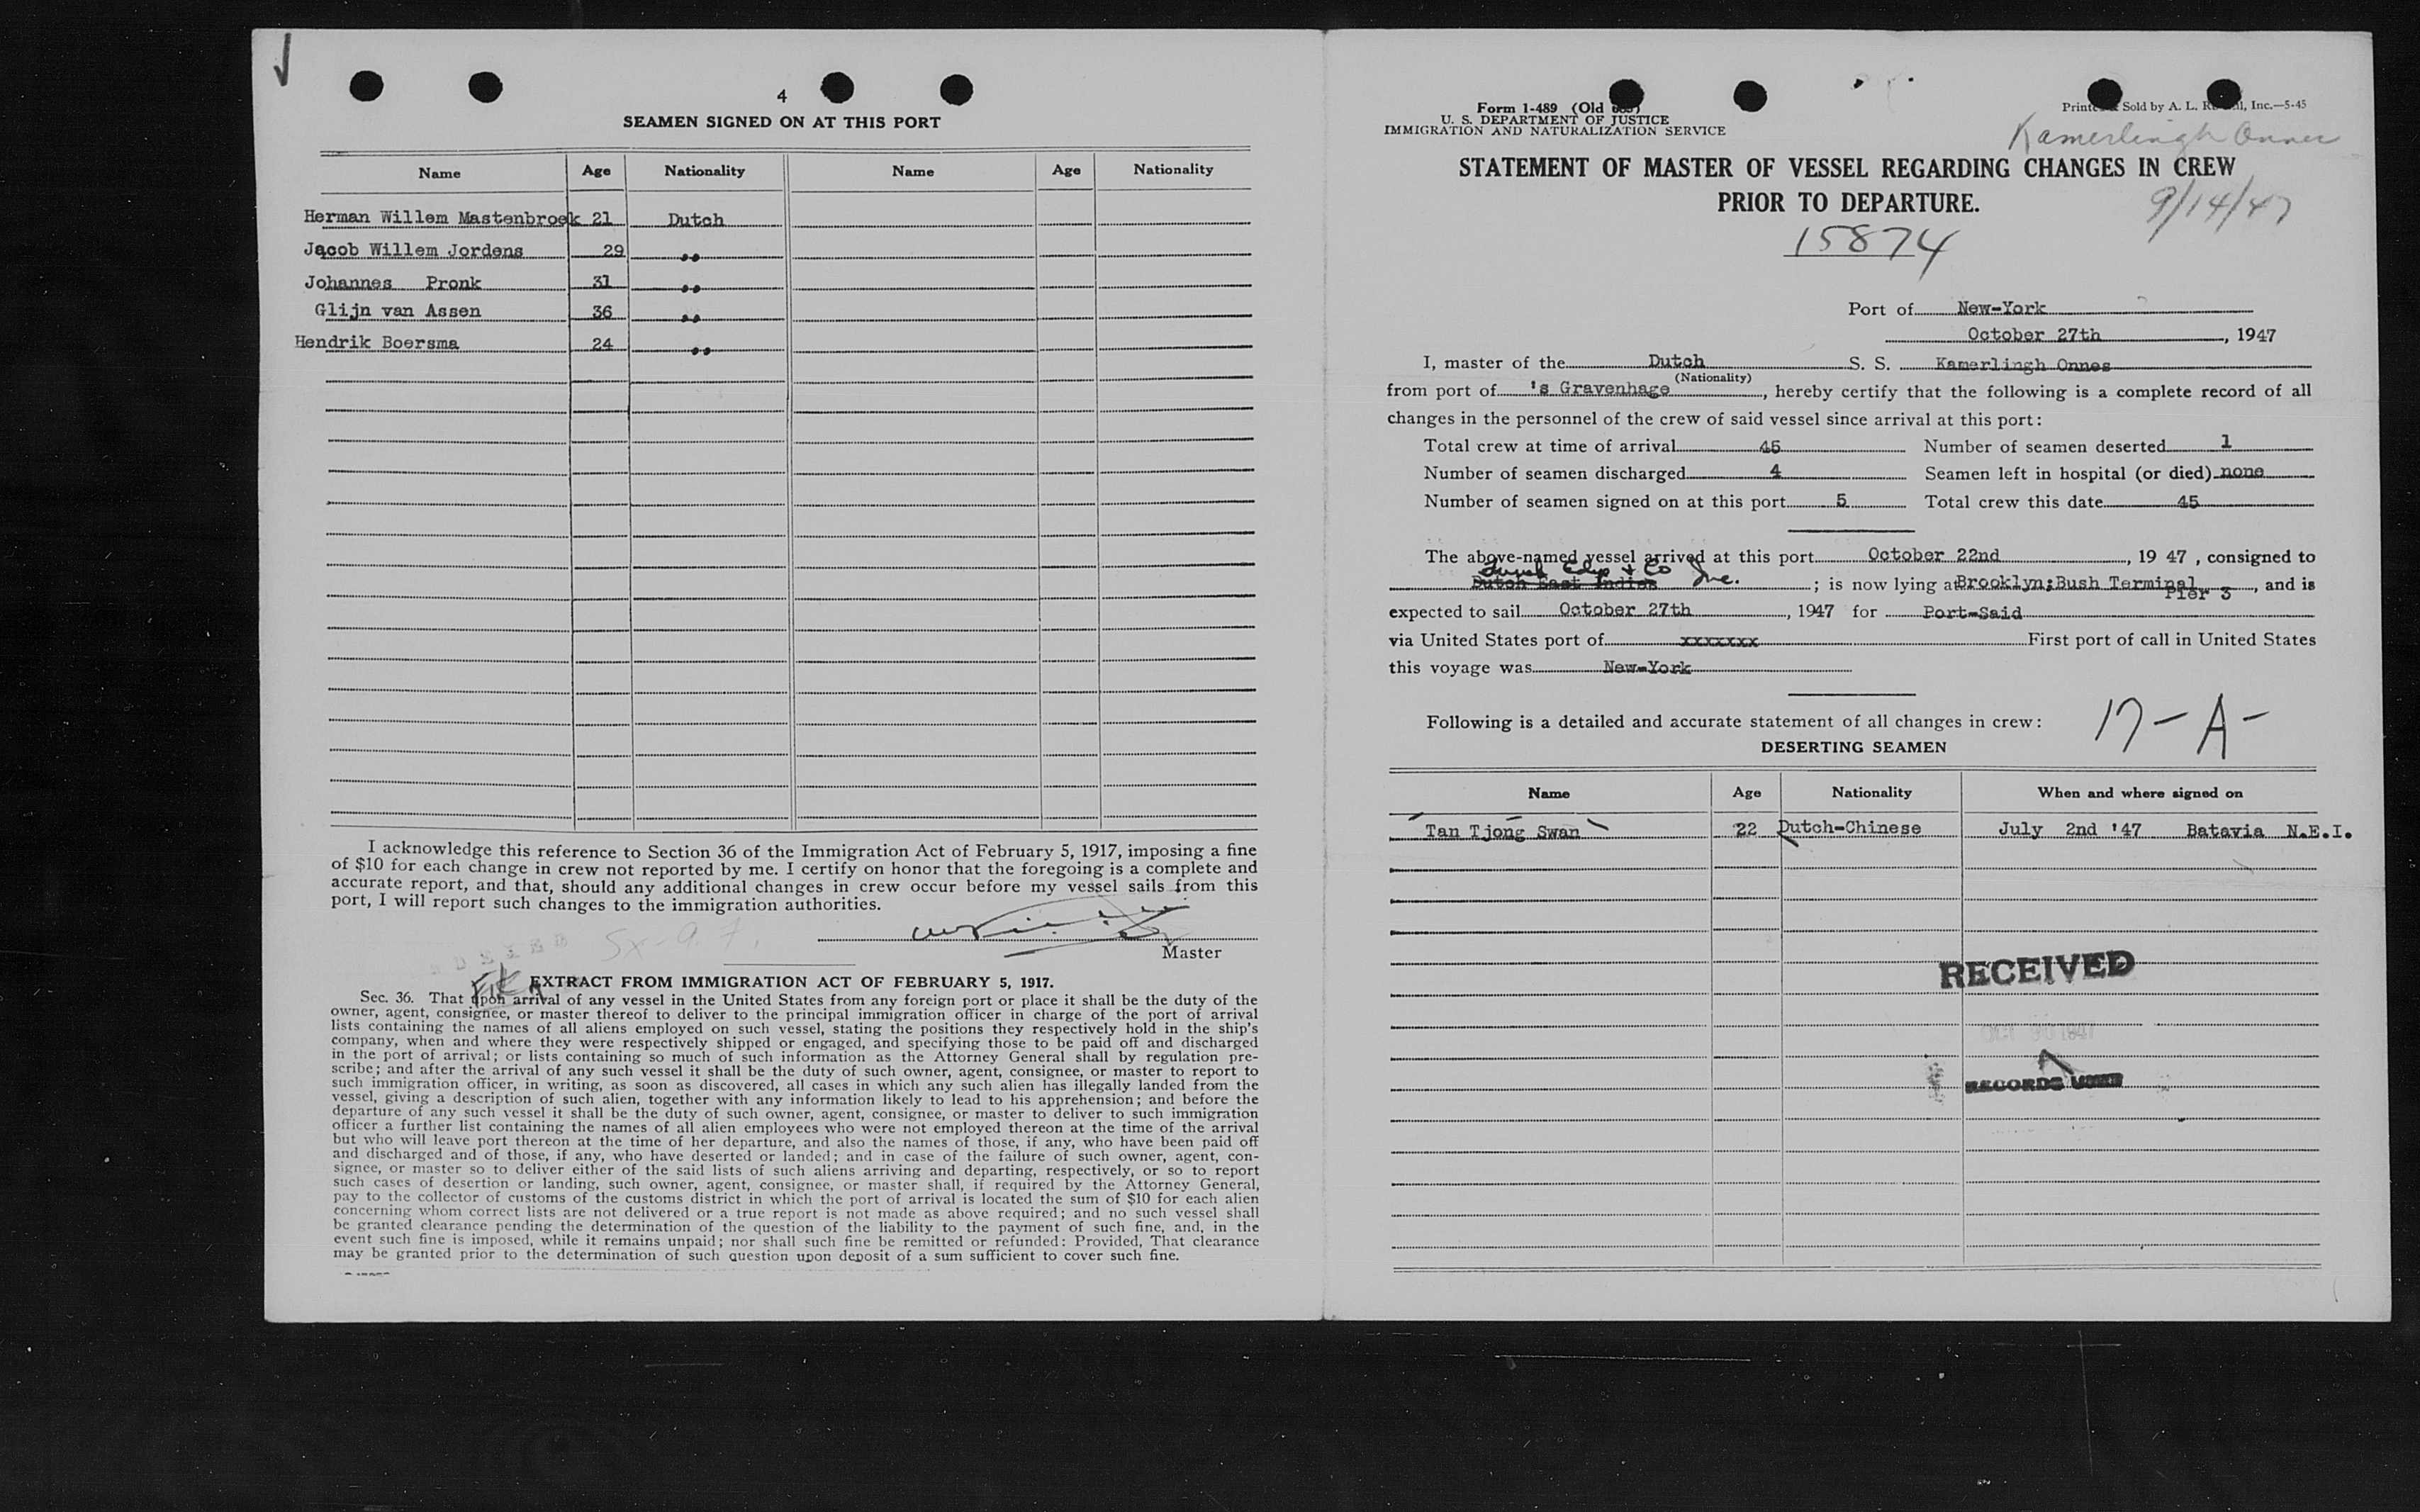 4
SEAMEN SIGNED ON AT THIS PORT
Name Age Nationality Name Age Nationality
Herman Willem Mastenbroek 21 Dutch
Jacob Willem Jordens 29 "
Johannes Pronk 31 "
Glijn van Assen 36 "
Hendrik Boersma 24 "
I acknowledge this reference to Section 36 of the Immigration Act of February 5, 1917, imposing a fine
of $10 for each change in crew not reported by me. I certify on honor that the foregoing is a complete and
accurate report, and that, should any additional changes in crew occur before my vessel sails from this
port, I will report such changes to the immigration authorities.
Master
EXTRACT FROM IMMIGRATION ACT OF FEBRUARY 5, 1917.
Sec. 36. That upon arrival of any vessel in the United States from any foreign port or place it shall be the duty of the
owner, agent, consignee, or master thereof to deliver to the principal immigration officer in charge of the port of arrival
lists containing the names of all aliens employed on such vessel, stating the positions they respectively hold in the ship's
company, when and where they were respectively shipped or engaged, and specifying those to be paid off and discharged
in the port of arrival; or lists containing so much of such information as the Attorney General shall by regulation pre-
scribe; and after the arrival of any such vessel it shall be the duty of such owner, agent, consignee, or master to report to
such immigration officer, in writing, as soon as discovered, all cases in which any such alien has illegally landed from the
vessel, giving a description of such alien, together with any information likely to lead to his apprehension; and before the
departure of any such vessel it shall be the duty of such owner, agent, consignee, or master to deliver to such immigration
officer a further list containing the names of all alien employees who were not employed thereon at the time of the arrival
but who will leave port thereon at the time of her departure, and also the names of those, if any, who have been paid off
and discharged and of those, if any, who have deserted or landed; and in case of the failure of such owner, agent, con-
signee, or master so to deliver either of the said lists of such aliens arriving and departing, respectively, or so to report
such cases of desertion or landing, such owner, agent, consignee, or master shall, if required by the Attorney General,
pay to the collector of customs of the customs district in which the port of arrival is located the sum of $10 for each alien
concerning whom correct lists are not delivered or a true report is not made as above required; and no such vessel shall
be granted clearance pending the determination of the question of the liability to the payment of such fine, and, in the
event such fine is imposed, while it remains unpaid; nor shall such fine be remitted or refunded: Provided, That clearance
may be granted prior to the determination of such question upon deposit of a sum sufficient to cover such fine.
Form I-489 (Old
U. S. DEPARTMENT OF JUSTICE
IMMIGRATION AND NATURALIZATION SERVICE
Sold by A. L. Inc.—5-45
Kamerlingh Onnes
STATEMENT OF MASTER OF VESSEL REGARDING CHANGES IN CREW
PRIOR TO DEPARTURE.
9/14/47
15874
Port of New-York
October 27th, 1947
I, master of the Dutch S. S. Kamerlingh Onnes
(Nationality)
from port of 's Gravenhage, hereby certify that the following is a complete record of all
changes in the personnel of the crew of said vessel since arrival at this port:
Total crew at time of arrival 45 Number of seamen deserted 1
Number of seamen discharged 4 Seamen left in hospital (or died) none
Number of seamen signed on at this port 5 Total crew this date 45
The above-named vessel arrived at this port October 22nd, 19 47, consigned to
Dutch East Indies Inc.; is now lying at Brooklyn;Bush Terminal Pier 3, and is
expected to sail October 27th, 1947 for Port-Said
via United States port of xxxxxxx First port of call in United States
this voyage was New-York
Following is a detailed and accurate statement of all changes in crew:
17-A-
DESERTING SEAMEN
Name Age Nationality When and where signed on
Tan Tjong Swan 22 Dutch-Chinese July 2nd '47 Batavia N.E.I.
RECEIVED
OCT 30 1947
RECORDS UNIT